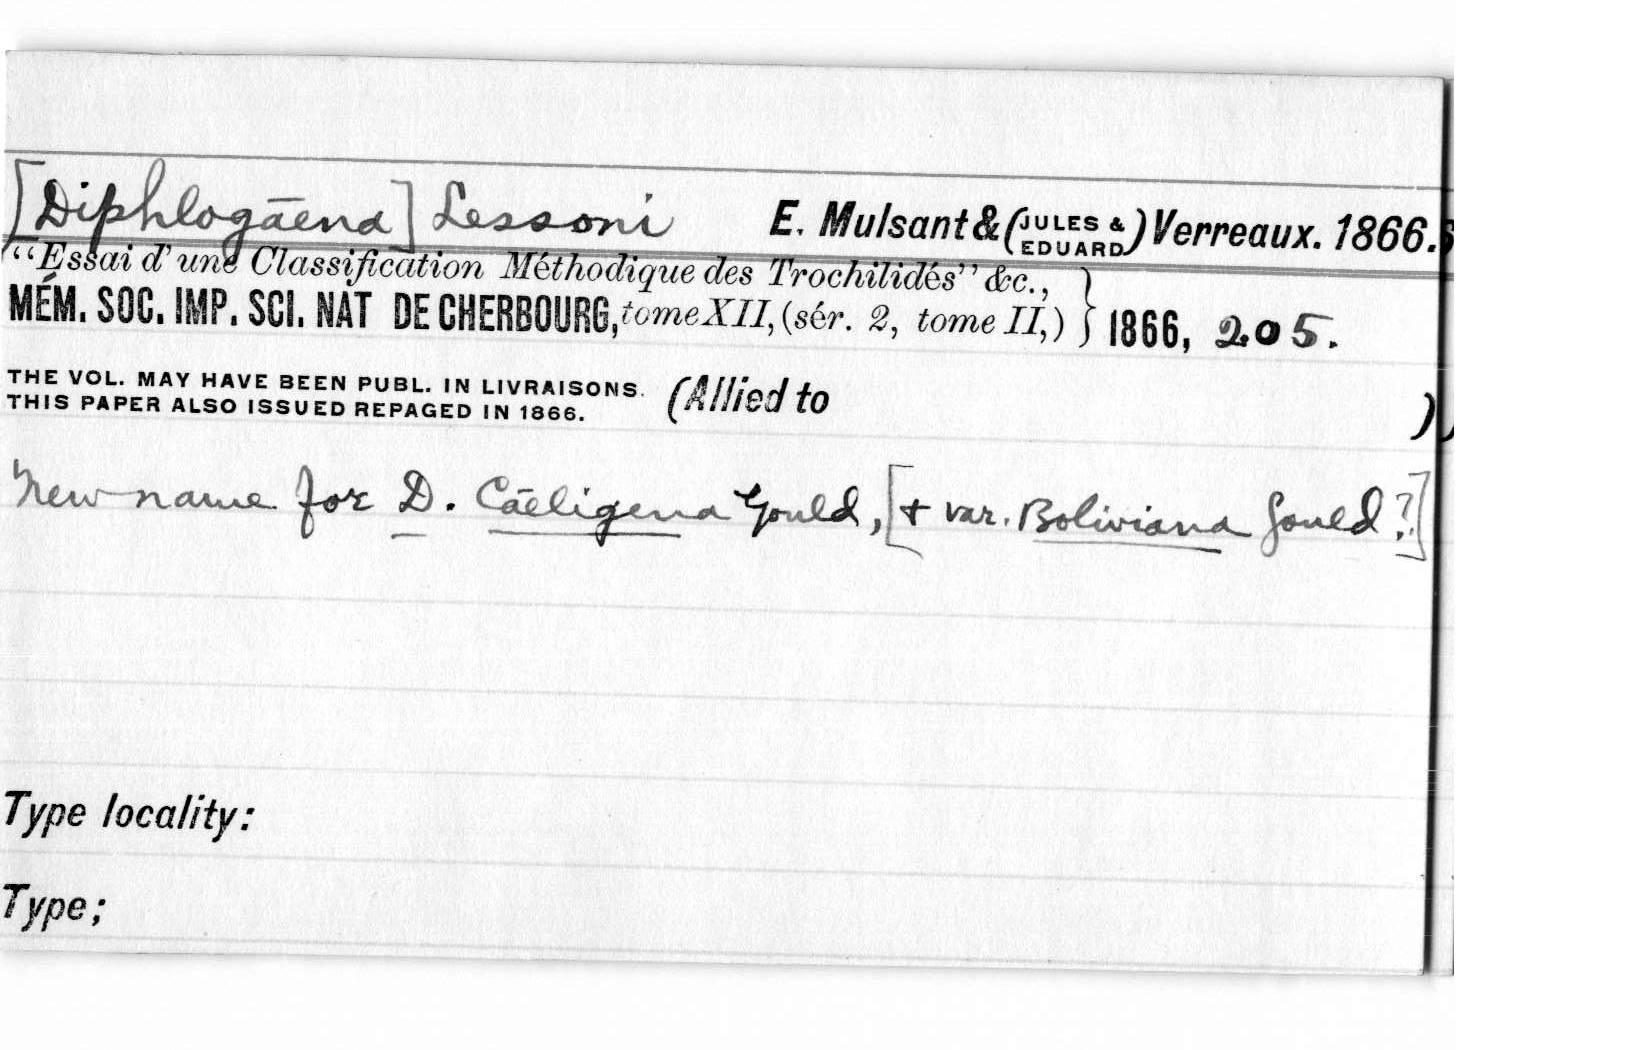 [Diphlogāena] Lessoni E. Mulsant & (JULES & EDUARD) Verreaux. 1866.
“Essai d'une Classification Méthodique des Trochilidés” &c.,
MÉM. SOC. IMP. SCI. NAT DE CHERBOURG, tome XII, (sér. 2, tome II,) } 1866, 205.
THE VOL. MAY HAVE BEEN PUBL. IN LIVRAISONS.
THIS PAPER ALSO ISSUED REPAGED IN 1866. (Allied to )
New name for D. Cāeligena Gould, [+ var. Boliviana Gould?]
Type locality:
Type;